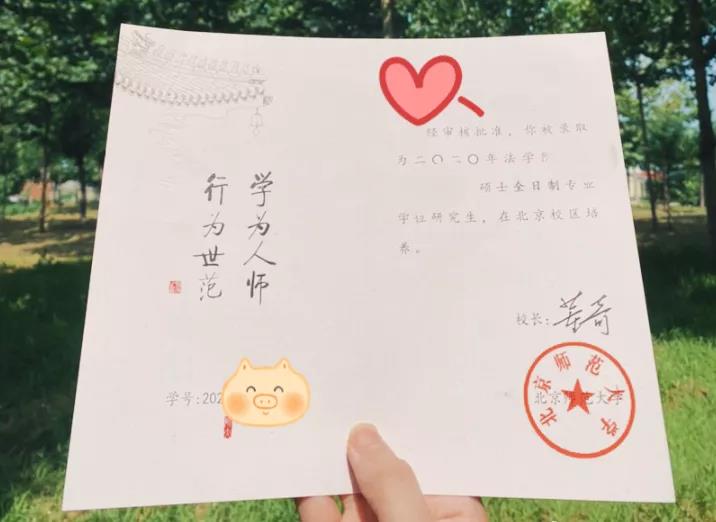 学为人师
行为世范
学号:202
经审核批准，你被录取
为二〇二〇年法学
硕士全日制专业
学位研究生，在北京校区培
养。
校长:董奇
北京师范大学
北京师范大学